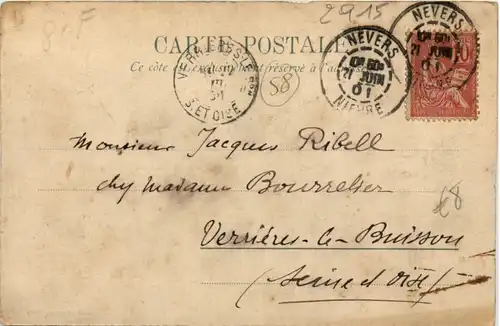 8 F
2915
CARTE POSTALE
Ce côté est exclusivement réservé à l'adresse
NEVERS
21 JUIN
01
NIEVRE
NEVERS
21 JUIN
01
S. ET OISE
58
Monsieur Jacques Ribell
chez Madame Bourrelier
Verrières-le-Buisson
(Seine et Oise)
€8